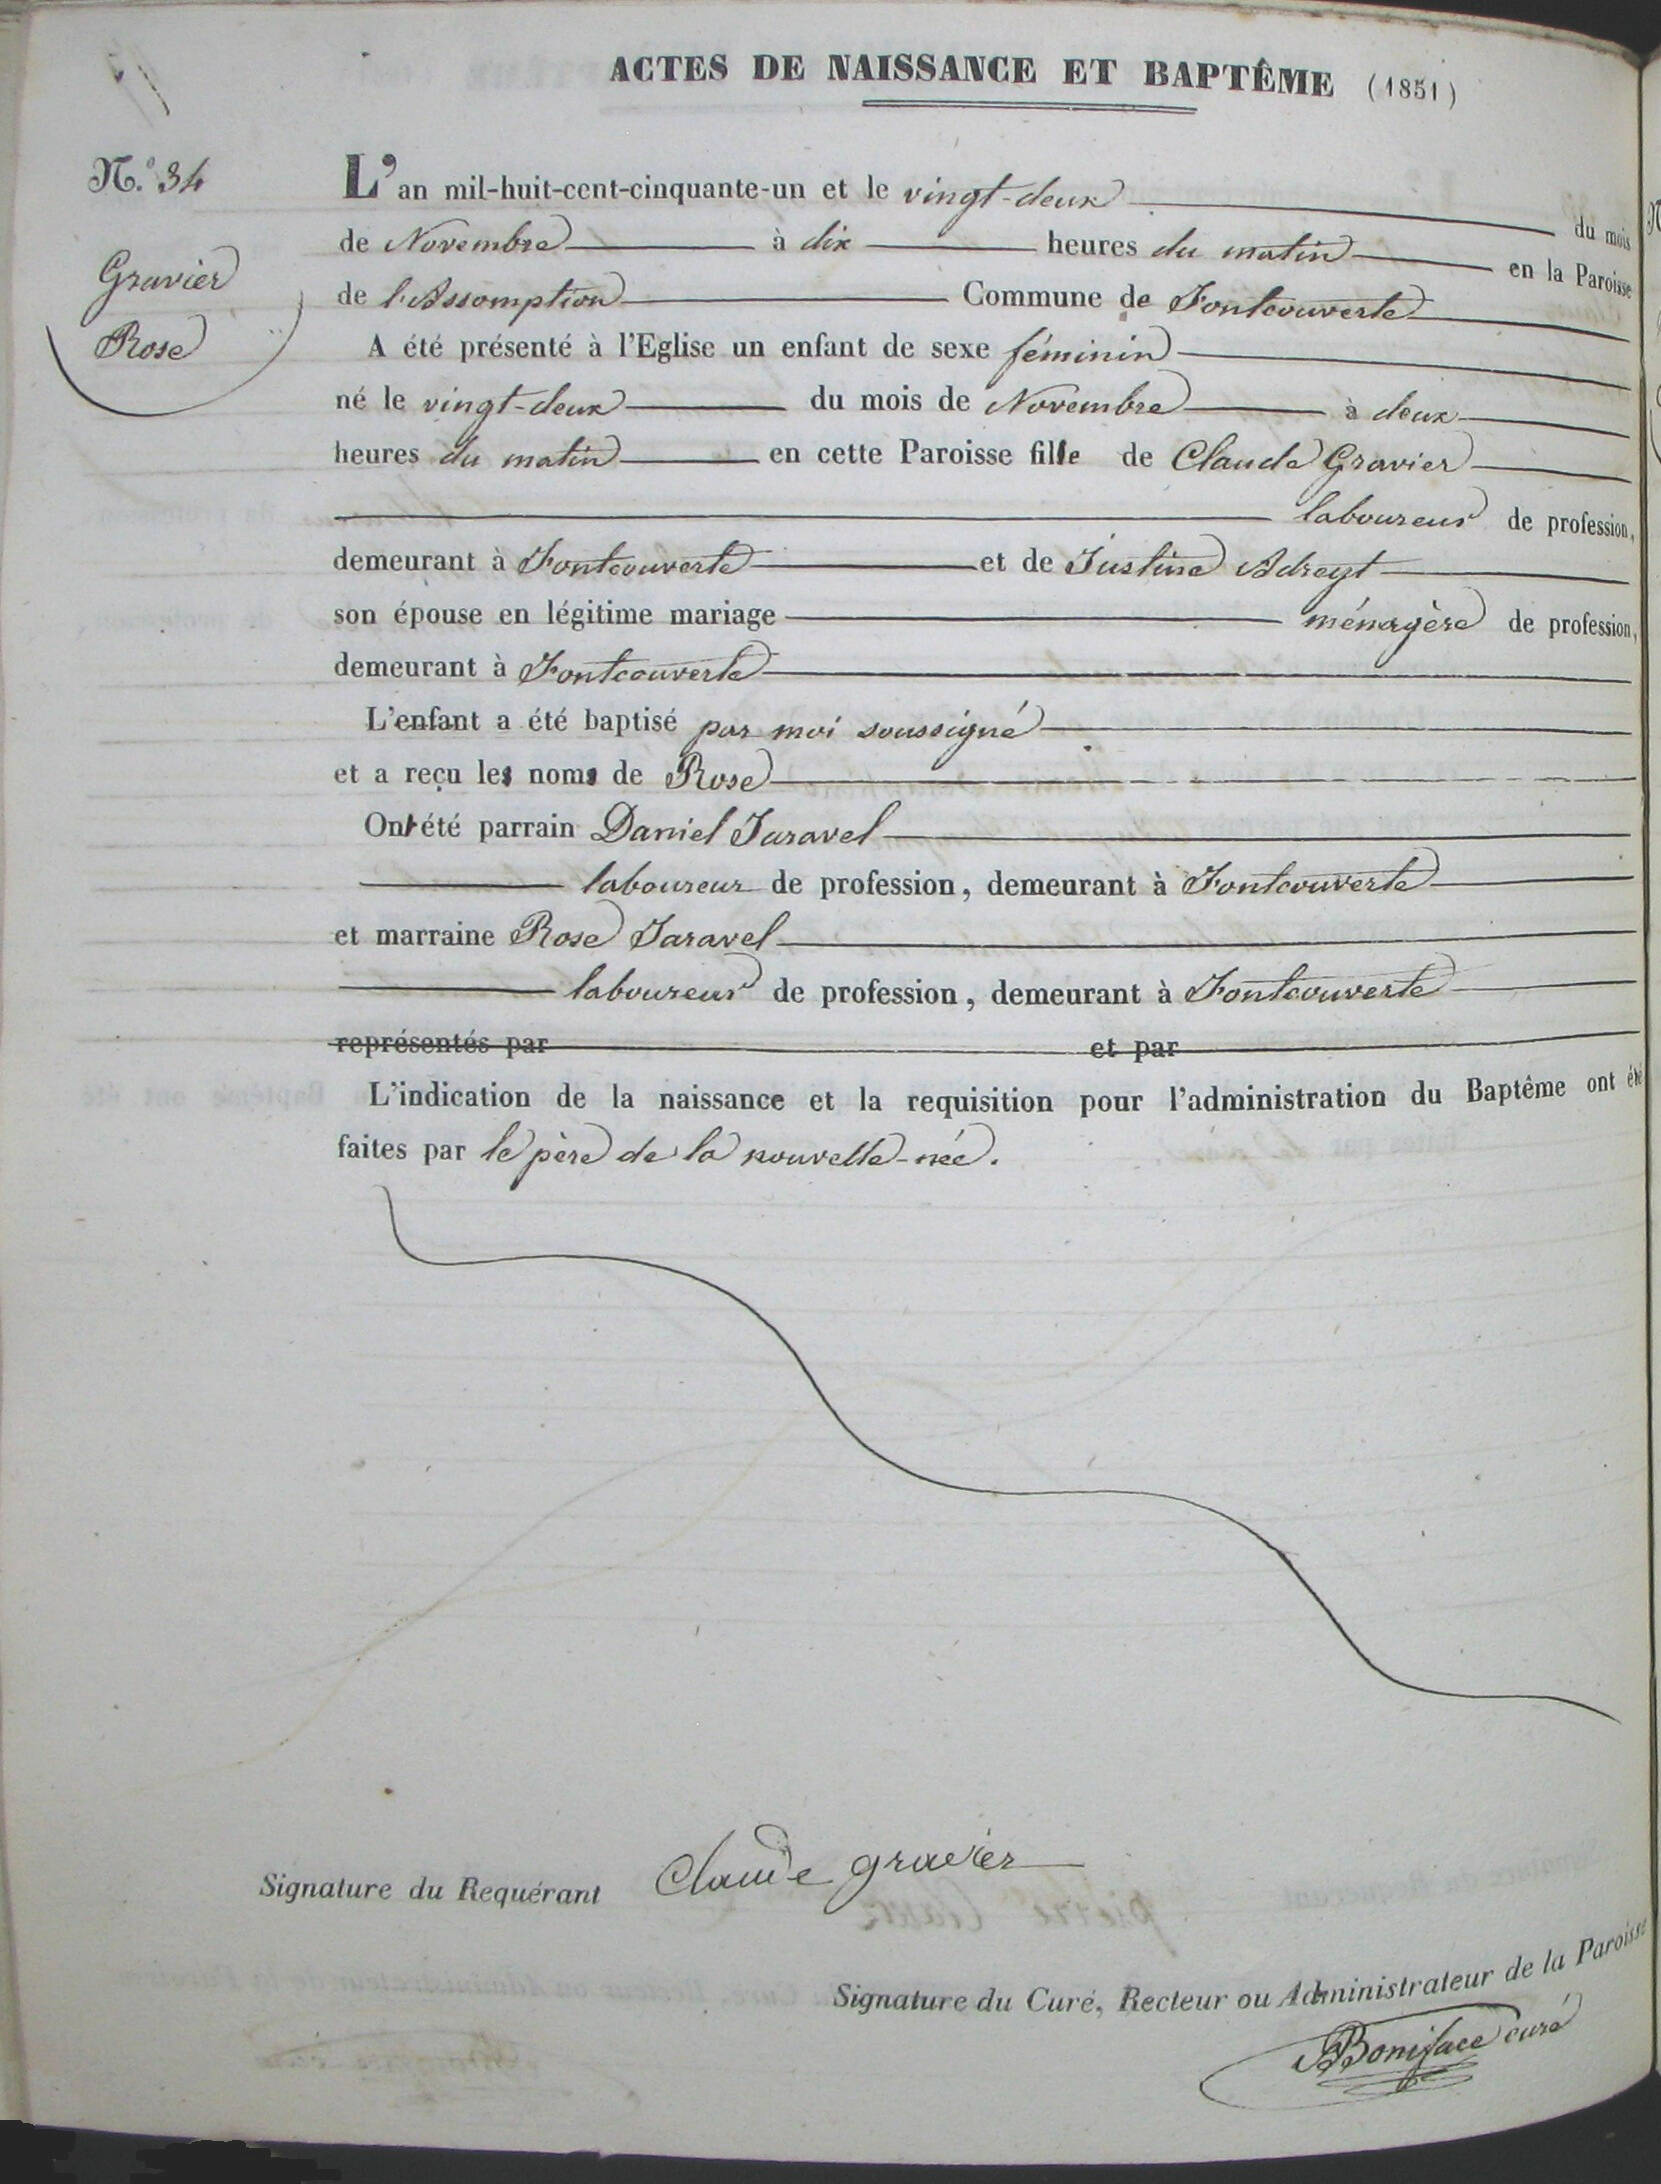 ACTES DE NAISSANCE ET BAPTÊME (1851)
N.° 34
Gravier
Rose
L'an mil-huit-cent-cinquante-un et le vingt-deux du mois
de Novembre à dix heures du matin en la Paroisse
de l'Assomption Commune de Fontcouverte
A été présenté à l'Eglise un enfant de sexe féminin
né le vingt-deux du mois de Novembre à deux
heures du matin en cette Paroisse fille de Claude Gravier
laboureur de profession,
demeurant à Fontcouverte et de Justine Adreyt
son épouse en légitime mariage ménagère de profession,
demeurant à Fontcouverte
L'enfant a été baptisé par moi soussigné
et a reçu les noms de Rose
Ont été parrain Daniel Jaravel
laboureur de profession, demeurant à Fontcouverte
et marraine Rose Jaravel
laboureur de profession, demeurant à Fontcouverte
représentés par et par
L'indication de la naissance et la requisition pour l'administration du Baptême ont été
faites par le père de la nouvelle-née.
Signature du Requérant Claude gravier
Signature du Curé, Recteur ou Administrateur de la Paroisse
Boniface curé